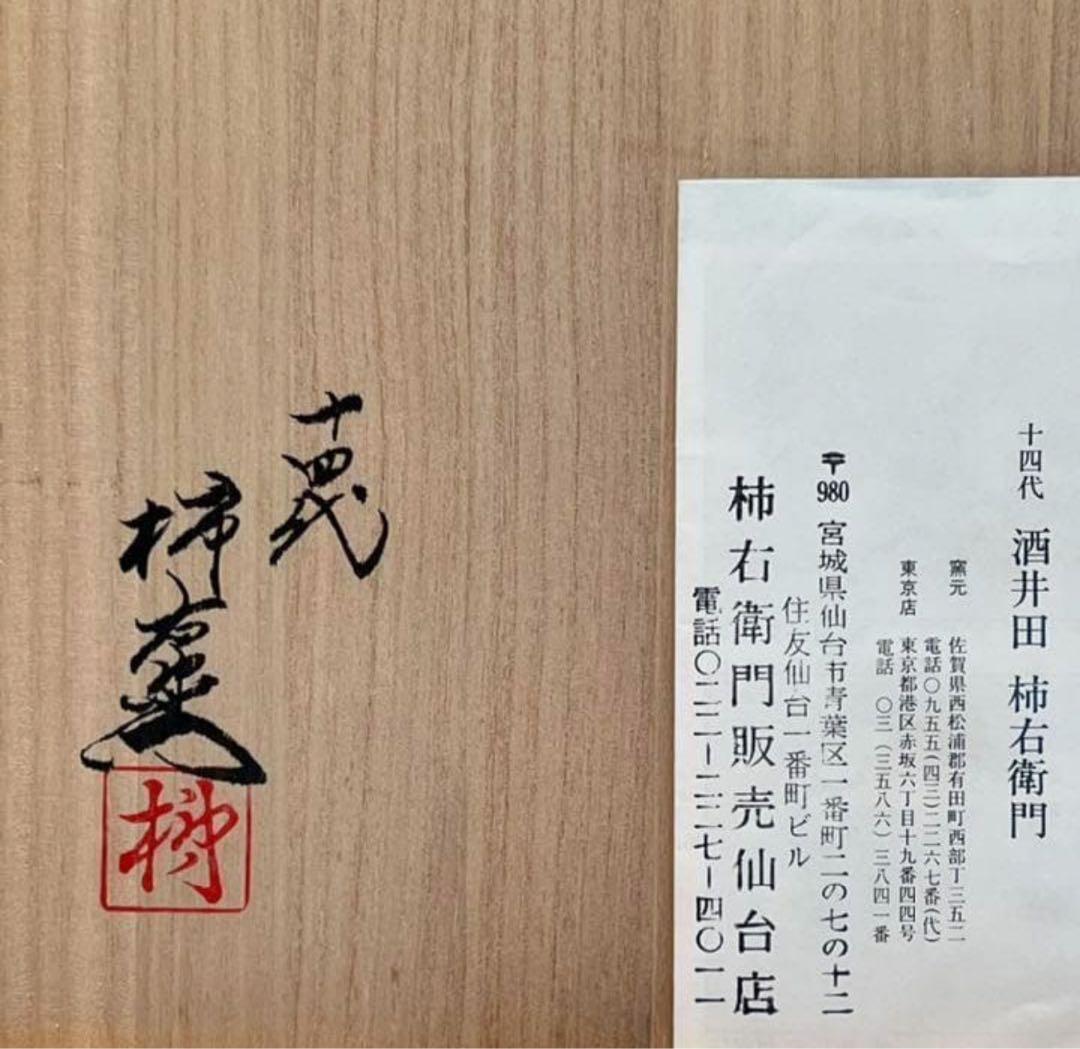 十四代 酒井田 柿右衛門
窯元 佐賀県西松浦郡有田町西部丁三五二
電話〇九五五(四三)二二六七番(代)
東京店 東京都港区赤坂六丁目十九番四四号
電話 〇三(三五八六)三八四一番
〒980 宮城県仙台市青葉区一番町二の七の十二
住友仙台一番町ビル
柿右衛門販売仙台店
電話〇二二ー二二七ー四〇一一
十四代
柿右衛門